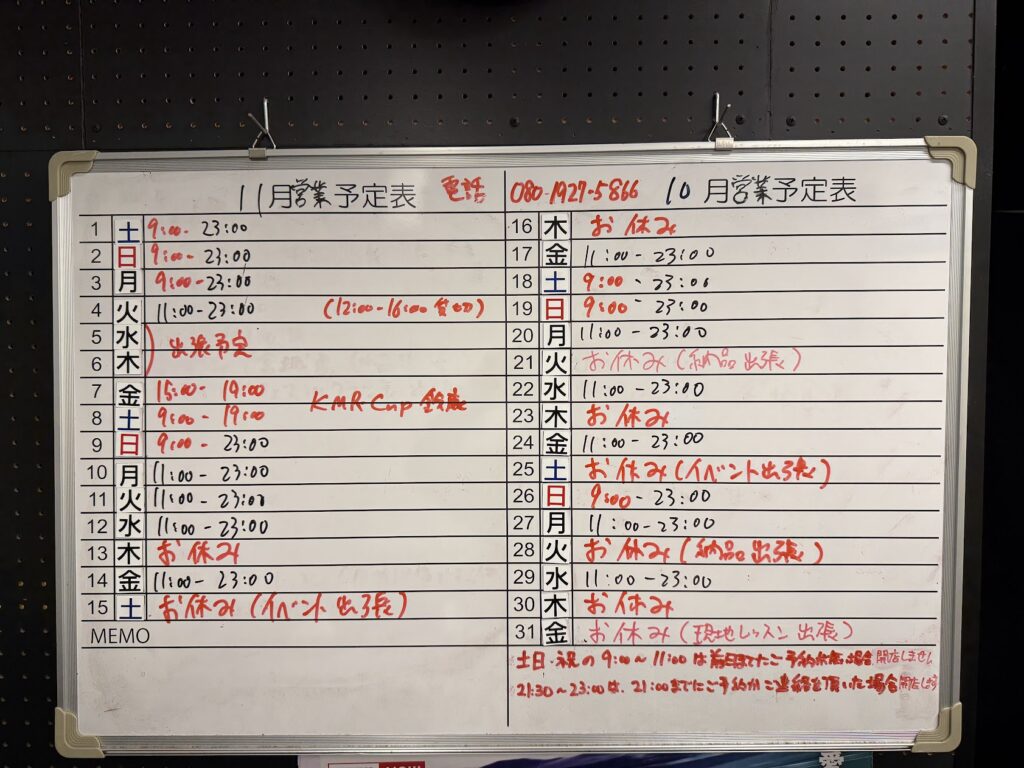 11月営業予定表 電話 080-1927-5866
1 土 9:00- 23:00
2 日 9:00- 23:00
3 月 9:00-23:00
4 火 11:00-23:00 (12:00-16:00 貸切)
5 水 出張予定
6 木
7 金 15:00- 19:00
KMR Cup 鈴鹿
8 土 9:00- 19:00
9 日 9:00- 23:00
10 月 11:00-23:00
11 火 11:00-23:00
12 水 11:00-23:00
13 木 お休み
14 金 11:00-23:00
15 土 お休み (イベント出張)
MEMO
10月営業予定表
16 木 お休み
17 金 11:00-23:00
18 土 9:00-23:00
19 日 9:00-23:00
20 月 11:00-23:00
21 火 お休み (納品出張)
22 水 11:00-23:00
23 木 お休み
24 金 11:00-23:00
25 土 お休み (イベント出張)
26 日 9:00-23:00
27 月 11:00-23:00
28 火 お休み (納品出張)
29 水 11:00-23:00
30 木 お休み
31 金 お休み (現地レッスン出張)
土日・祝の9:00~11:00は前日までにご予約無い場合開店しません
21:30~23:00は、21:00までにご予約かご連絡を頂いた場合開店します
愛